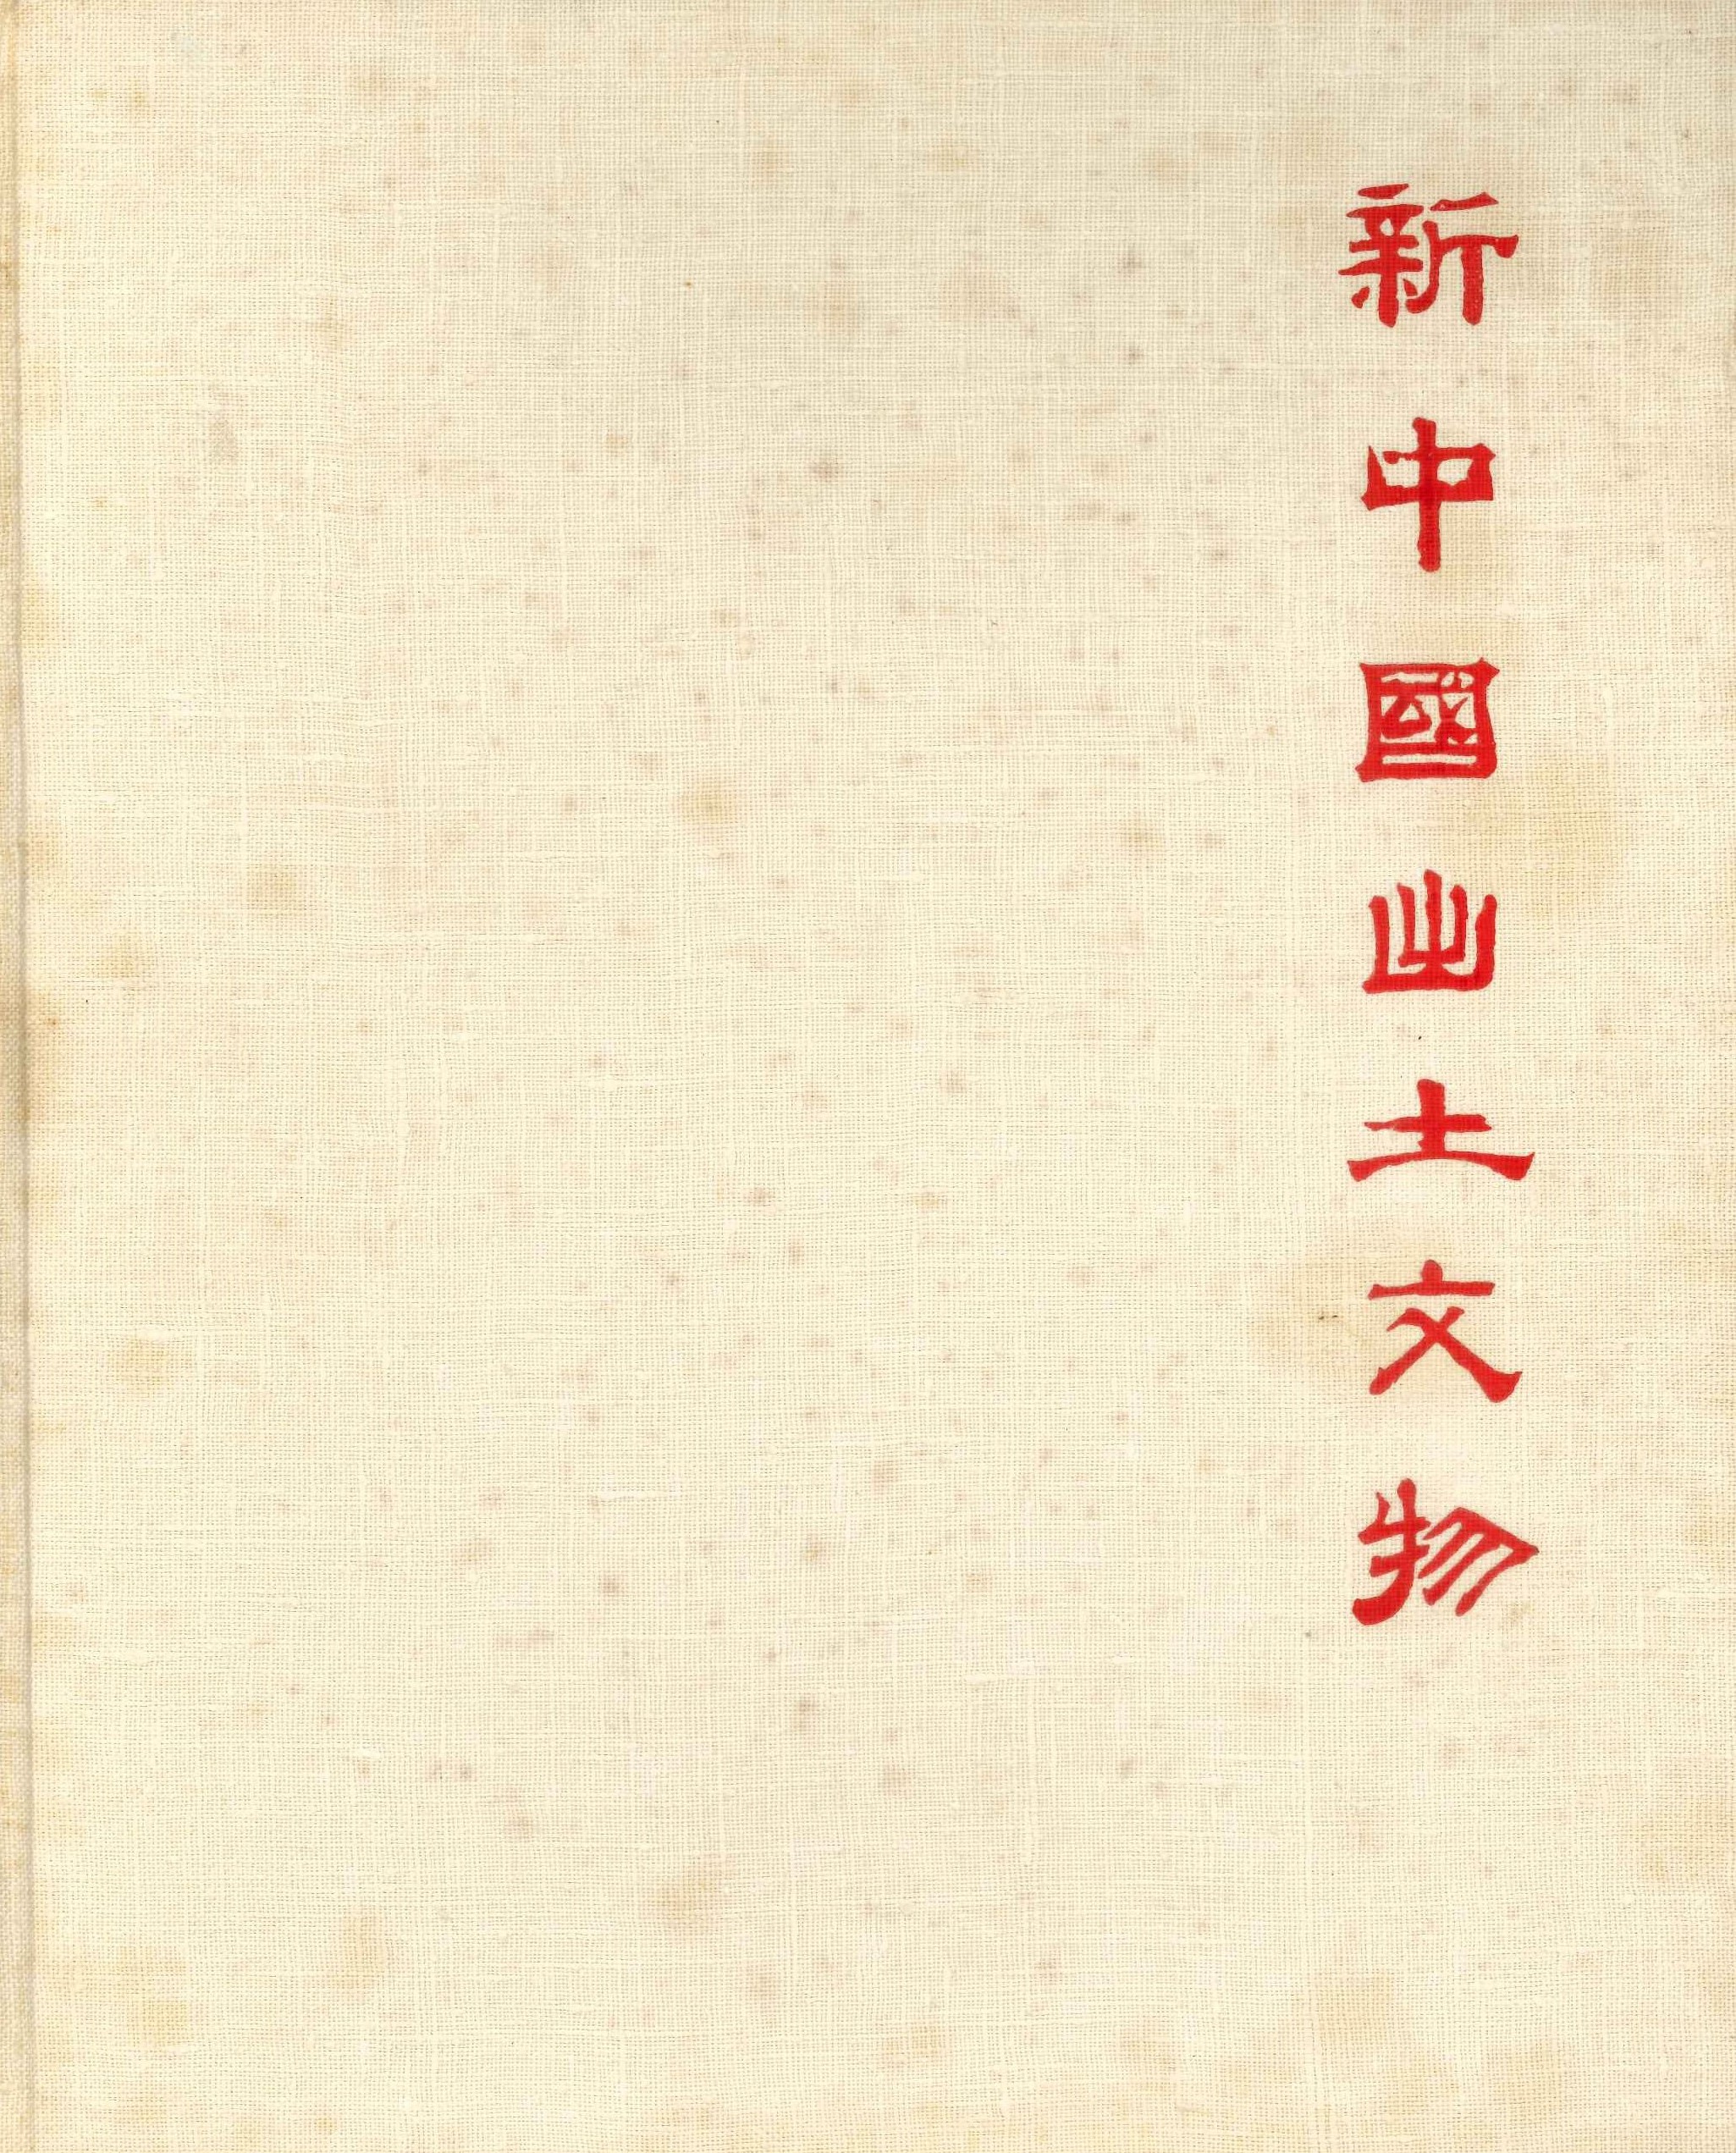 新中國出土文物